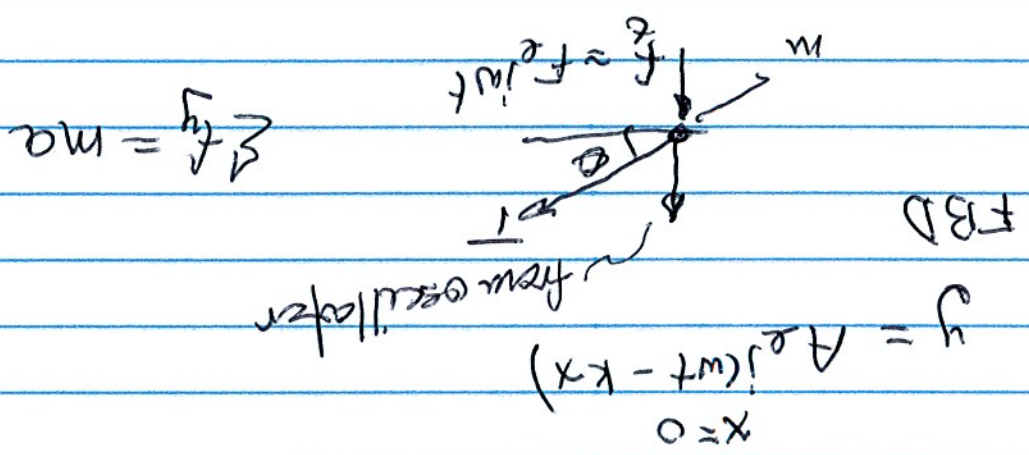 x = 0
y = Ae^{j(ωt - kx)}
from oscillator
FBD
T
θ
Σfy = ma
m
f_z = Fe^{jωt}